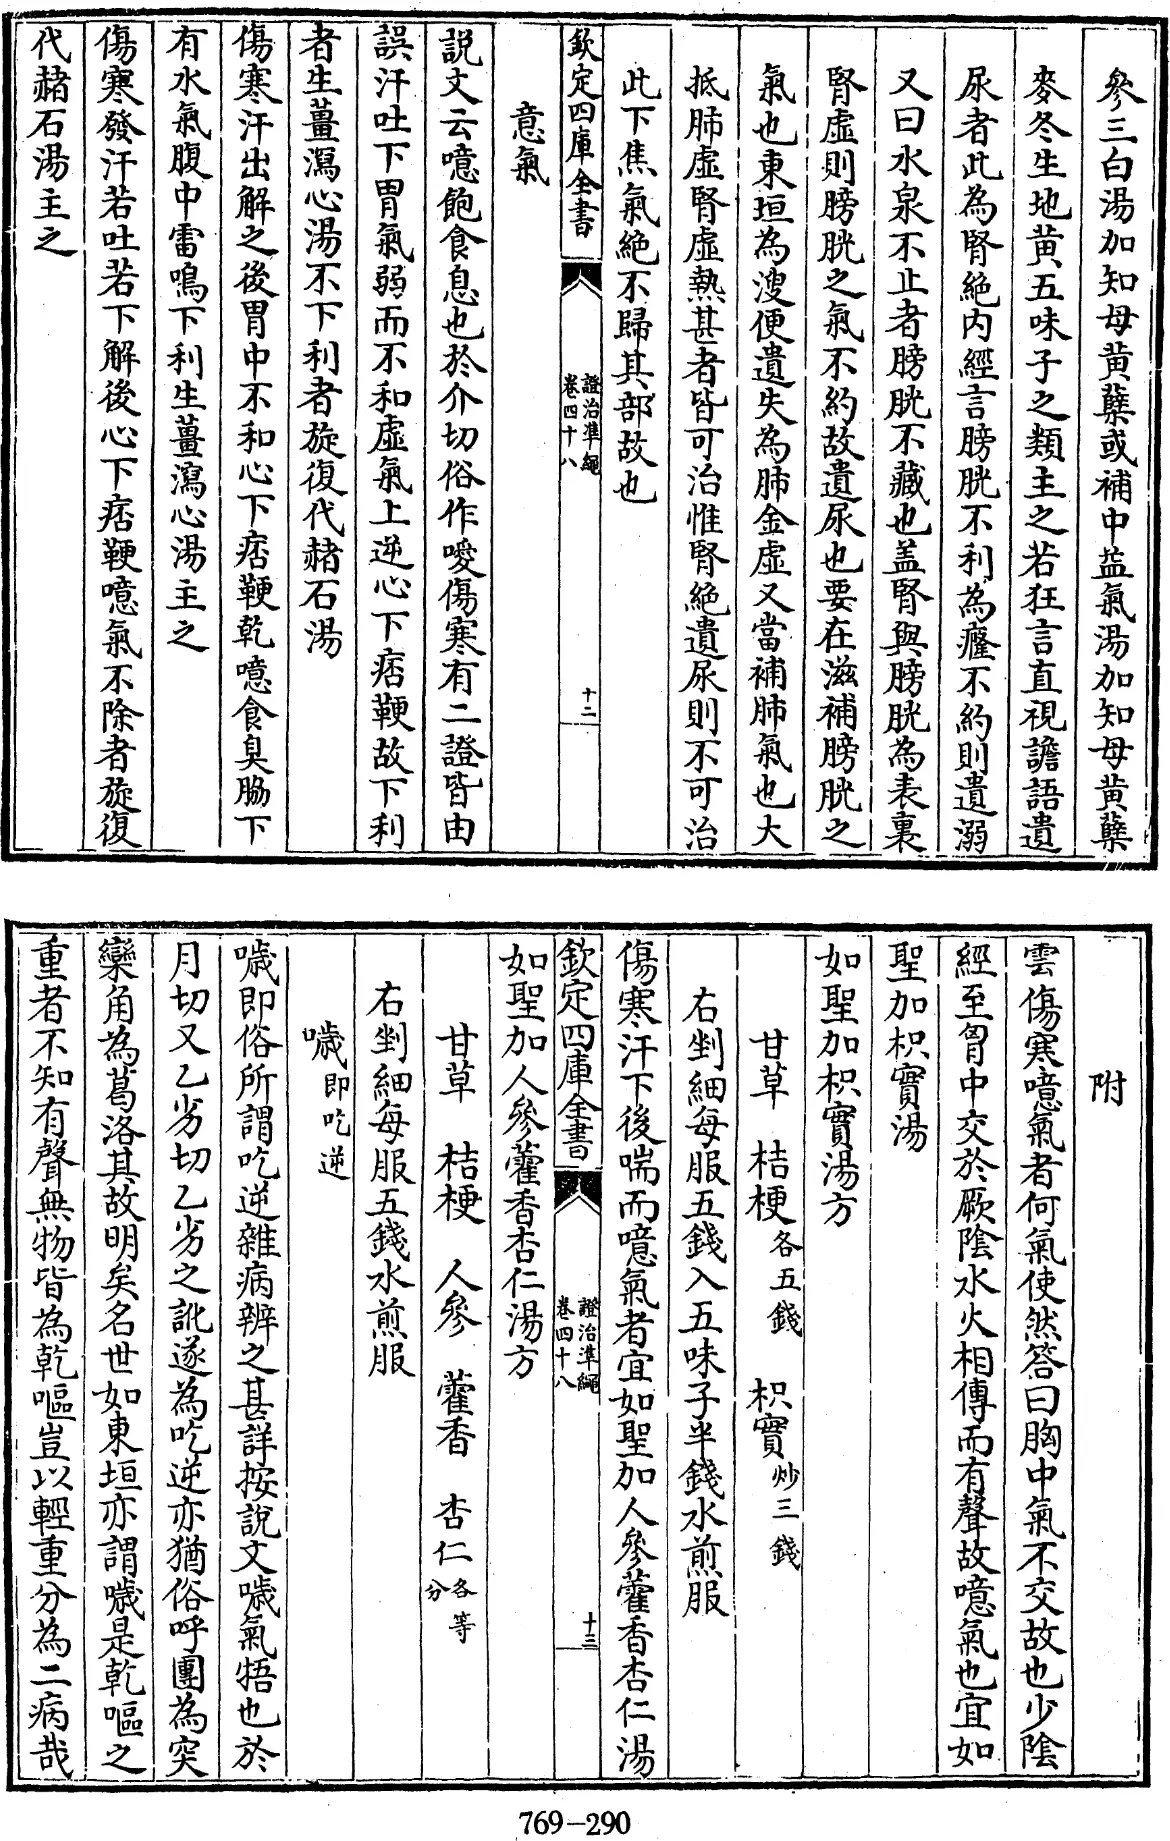 參三白湯加知母黄蘗或補中益氣湯加知母黄蘗
麥冬生地黄五味子之類主之若狂言直視譫語遺
尿者此為腎絶内經言膀胱不利為癃不約則遺溺
又曰水泉不止者膀胱不藏也盖腎與膀胱為表裏
腎虚則膀胱之氣不約故遺尿也要在滋補膀胱之
氣也東垣為溲便遺失為肺金虚又當補肺氣也大
抵肺虚腎虚熱甚者皆可治惟腎絶遺尿則不可治
此下焦氣絶不歸其部故也
欽定四庫全書
證治準繩
卷四十八
十二
意氣
説文云噫飽食息也於介切俗作噯傷寒有二證皆由
誤汗吐下胃氣弱而不和虚氣上逆心下痞鞕故下利
者生薑瀉心湯不下利者旋復代赭石湯
傷寒汗出解之後胃中不和心下痞鞕乾噫食臭脇下
有水氣腹中雷鳴下利生薑瀉心湯主之
傷寒發汗若吐若下解後心下痞鞕噫氣不除者旋復
代赭石湯主之
附
雲傷寒噫氣者何氣使然答曰胸中氣不交故也少隂
經至胃中交於厥隂水火相傳而有聲故噫氣也宜如
聖加枳實湯
如聖加枳實湯方
甘草 桔梗各五錢 枳實炒三錢
右剉細每服五錢入五味子半錢水煎服
傷寒汗下後喘而噫氣者宜如聖加人參藿香杏仁湯
欽定四庫全書
證治準繩
卷四十八
十三
如聖加人參藿香杏仁湯方
甘草 桔梗 人參 藿香 杏仁各等分
右剉細每服五錢水煎服
噦即吃逆
噦即俗所謂吃逆雜病辨之甚詳按説文噦氣啎也於
月切又乙劣切乙劣之訛遂為吃逆亦猶俗呼團為突
欒角為葛洛其故明矣名世如東垣亦謂噦是乾嘔之
重者不知有聲無物皆為乾嘔豈以輕重分為二病哉
769-290